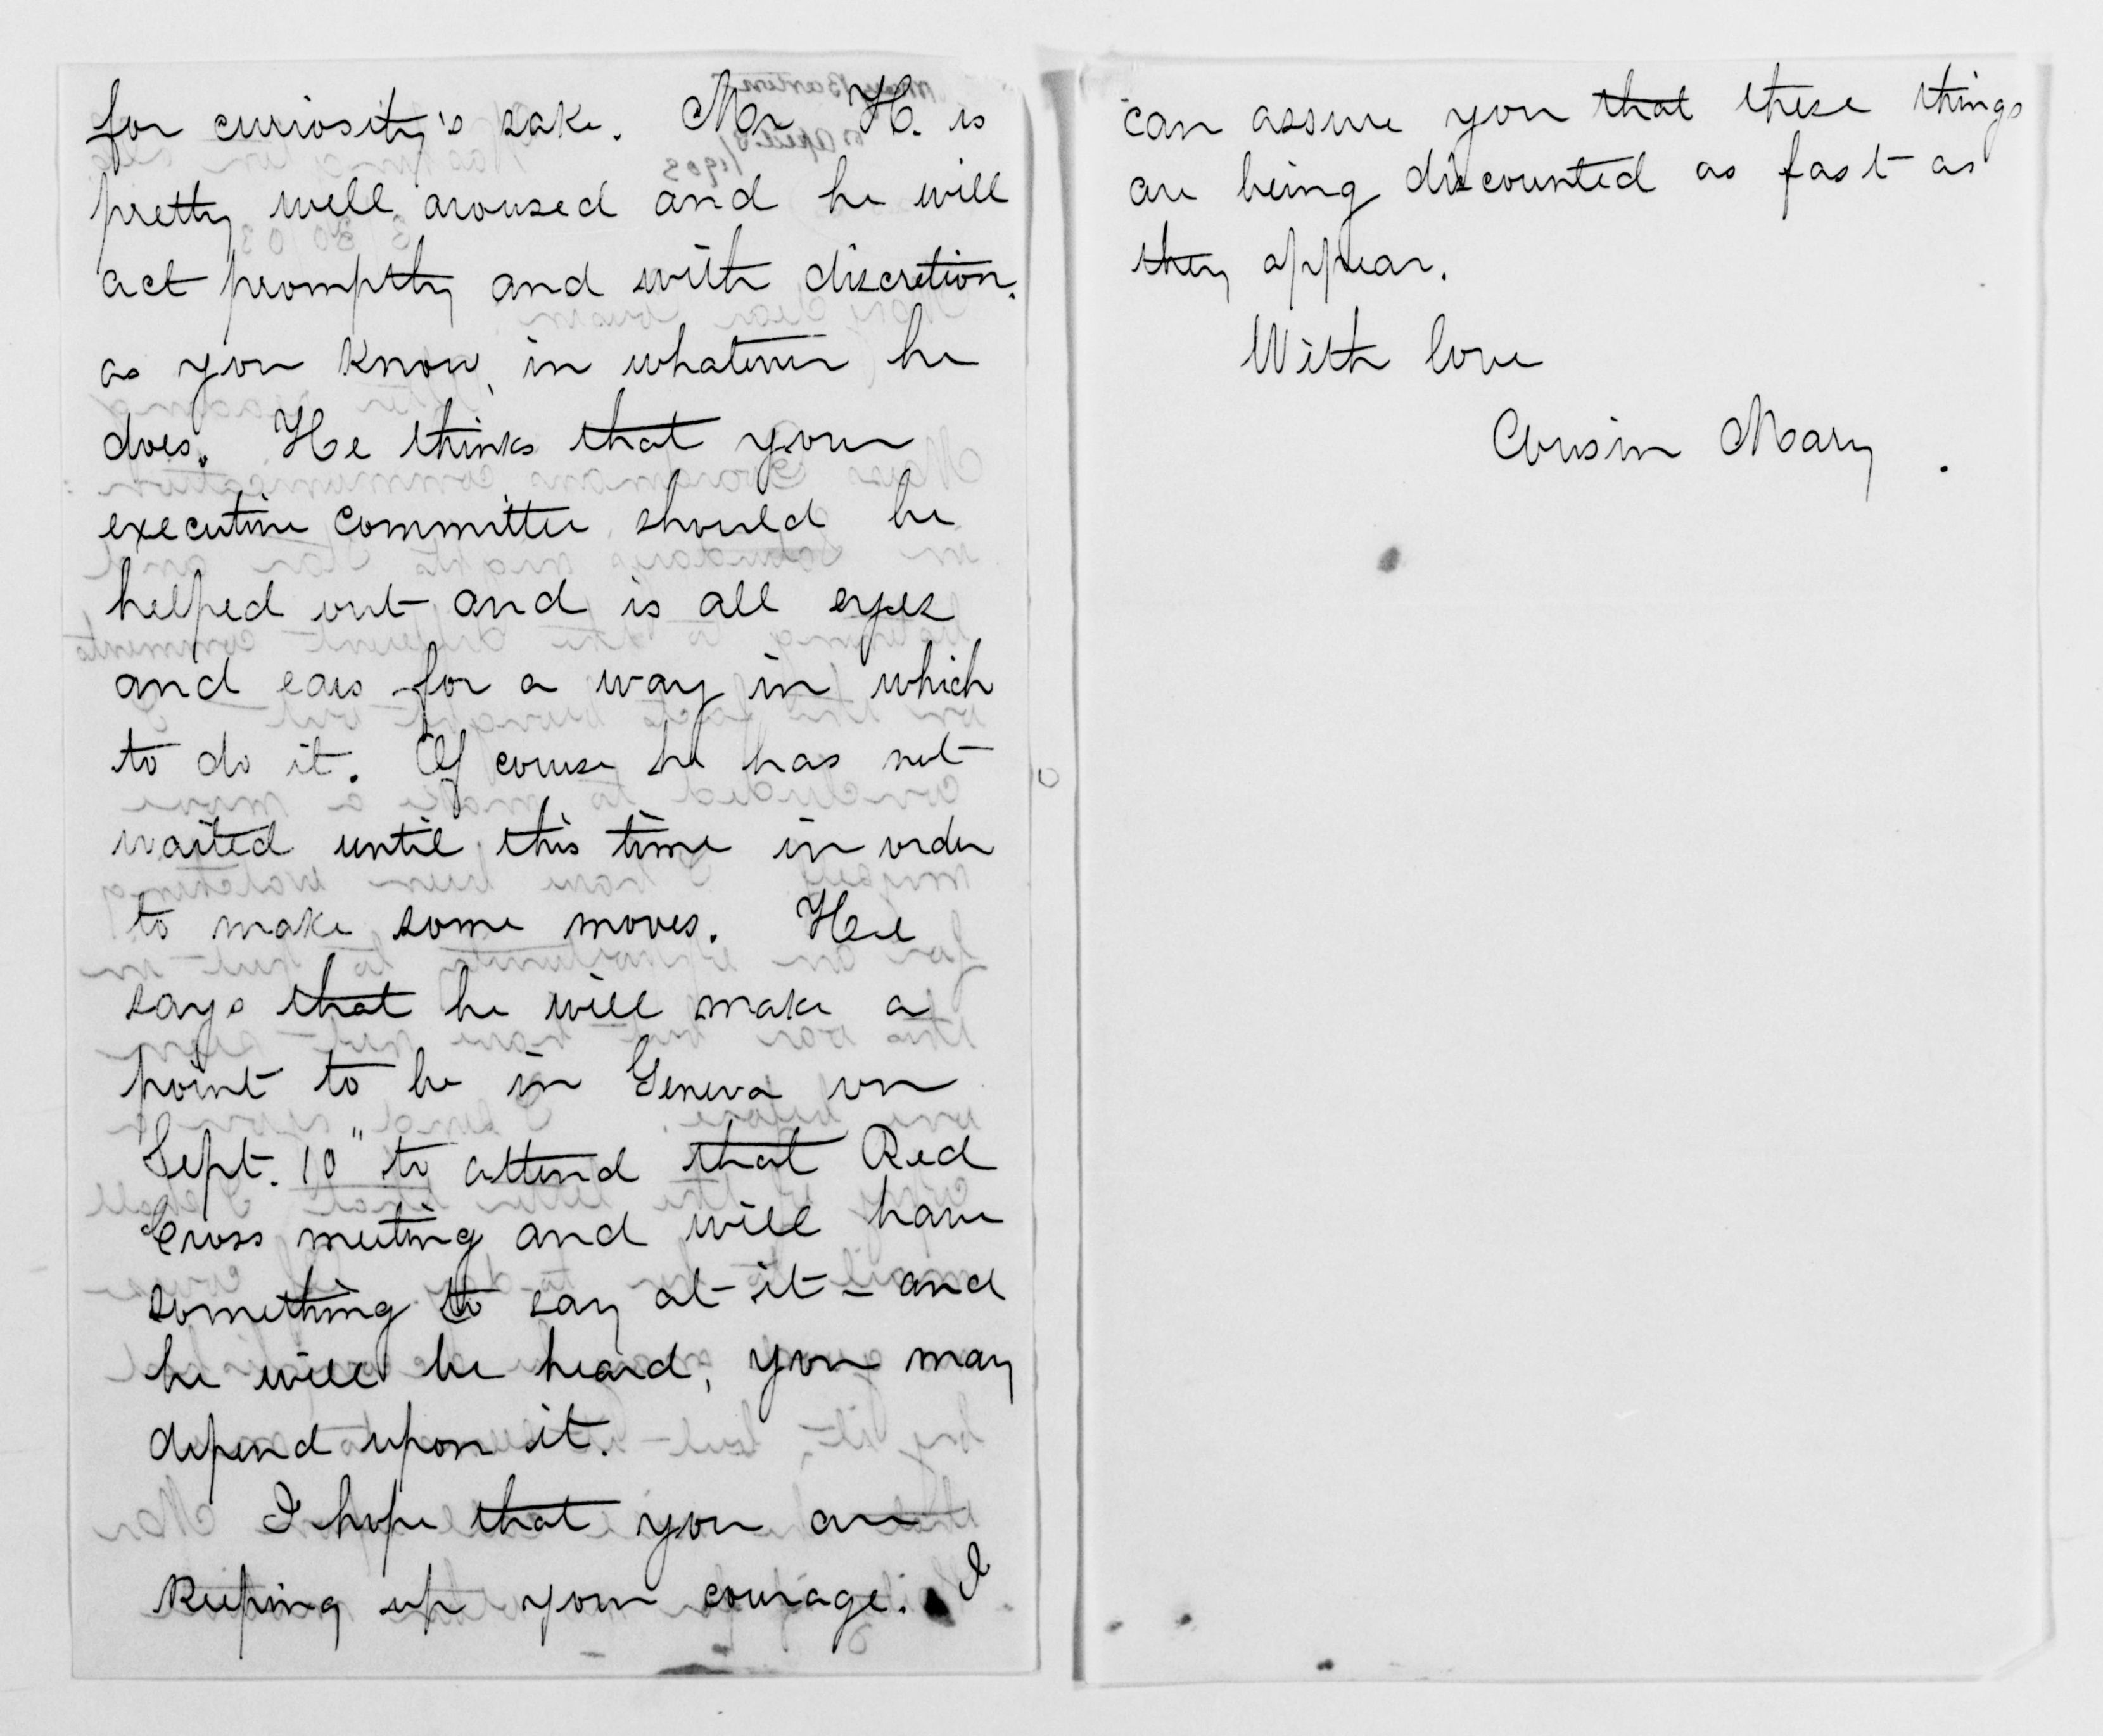 for curiosity's sake. Mr H. is
pretty well aroused and he will
act promptly and with discretion.
as you know, in whatever he
does. He thinks that your
executive committee should be
helped out and is all eyes
and ears for a way in which
to do it. Of course he has not
waited until this time in order
to make some moves. He
says that he will make a
point to be in Geneva on
Sept. 10" to attend that Red
Cross meeting and will have
something to say at it - and
he will be heard, you may
depend upon it.
I hope that you are
keeping up your courage. I
can assure you that these things
are being discounted as fast as
they appear.
With love
Cousin Mary.